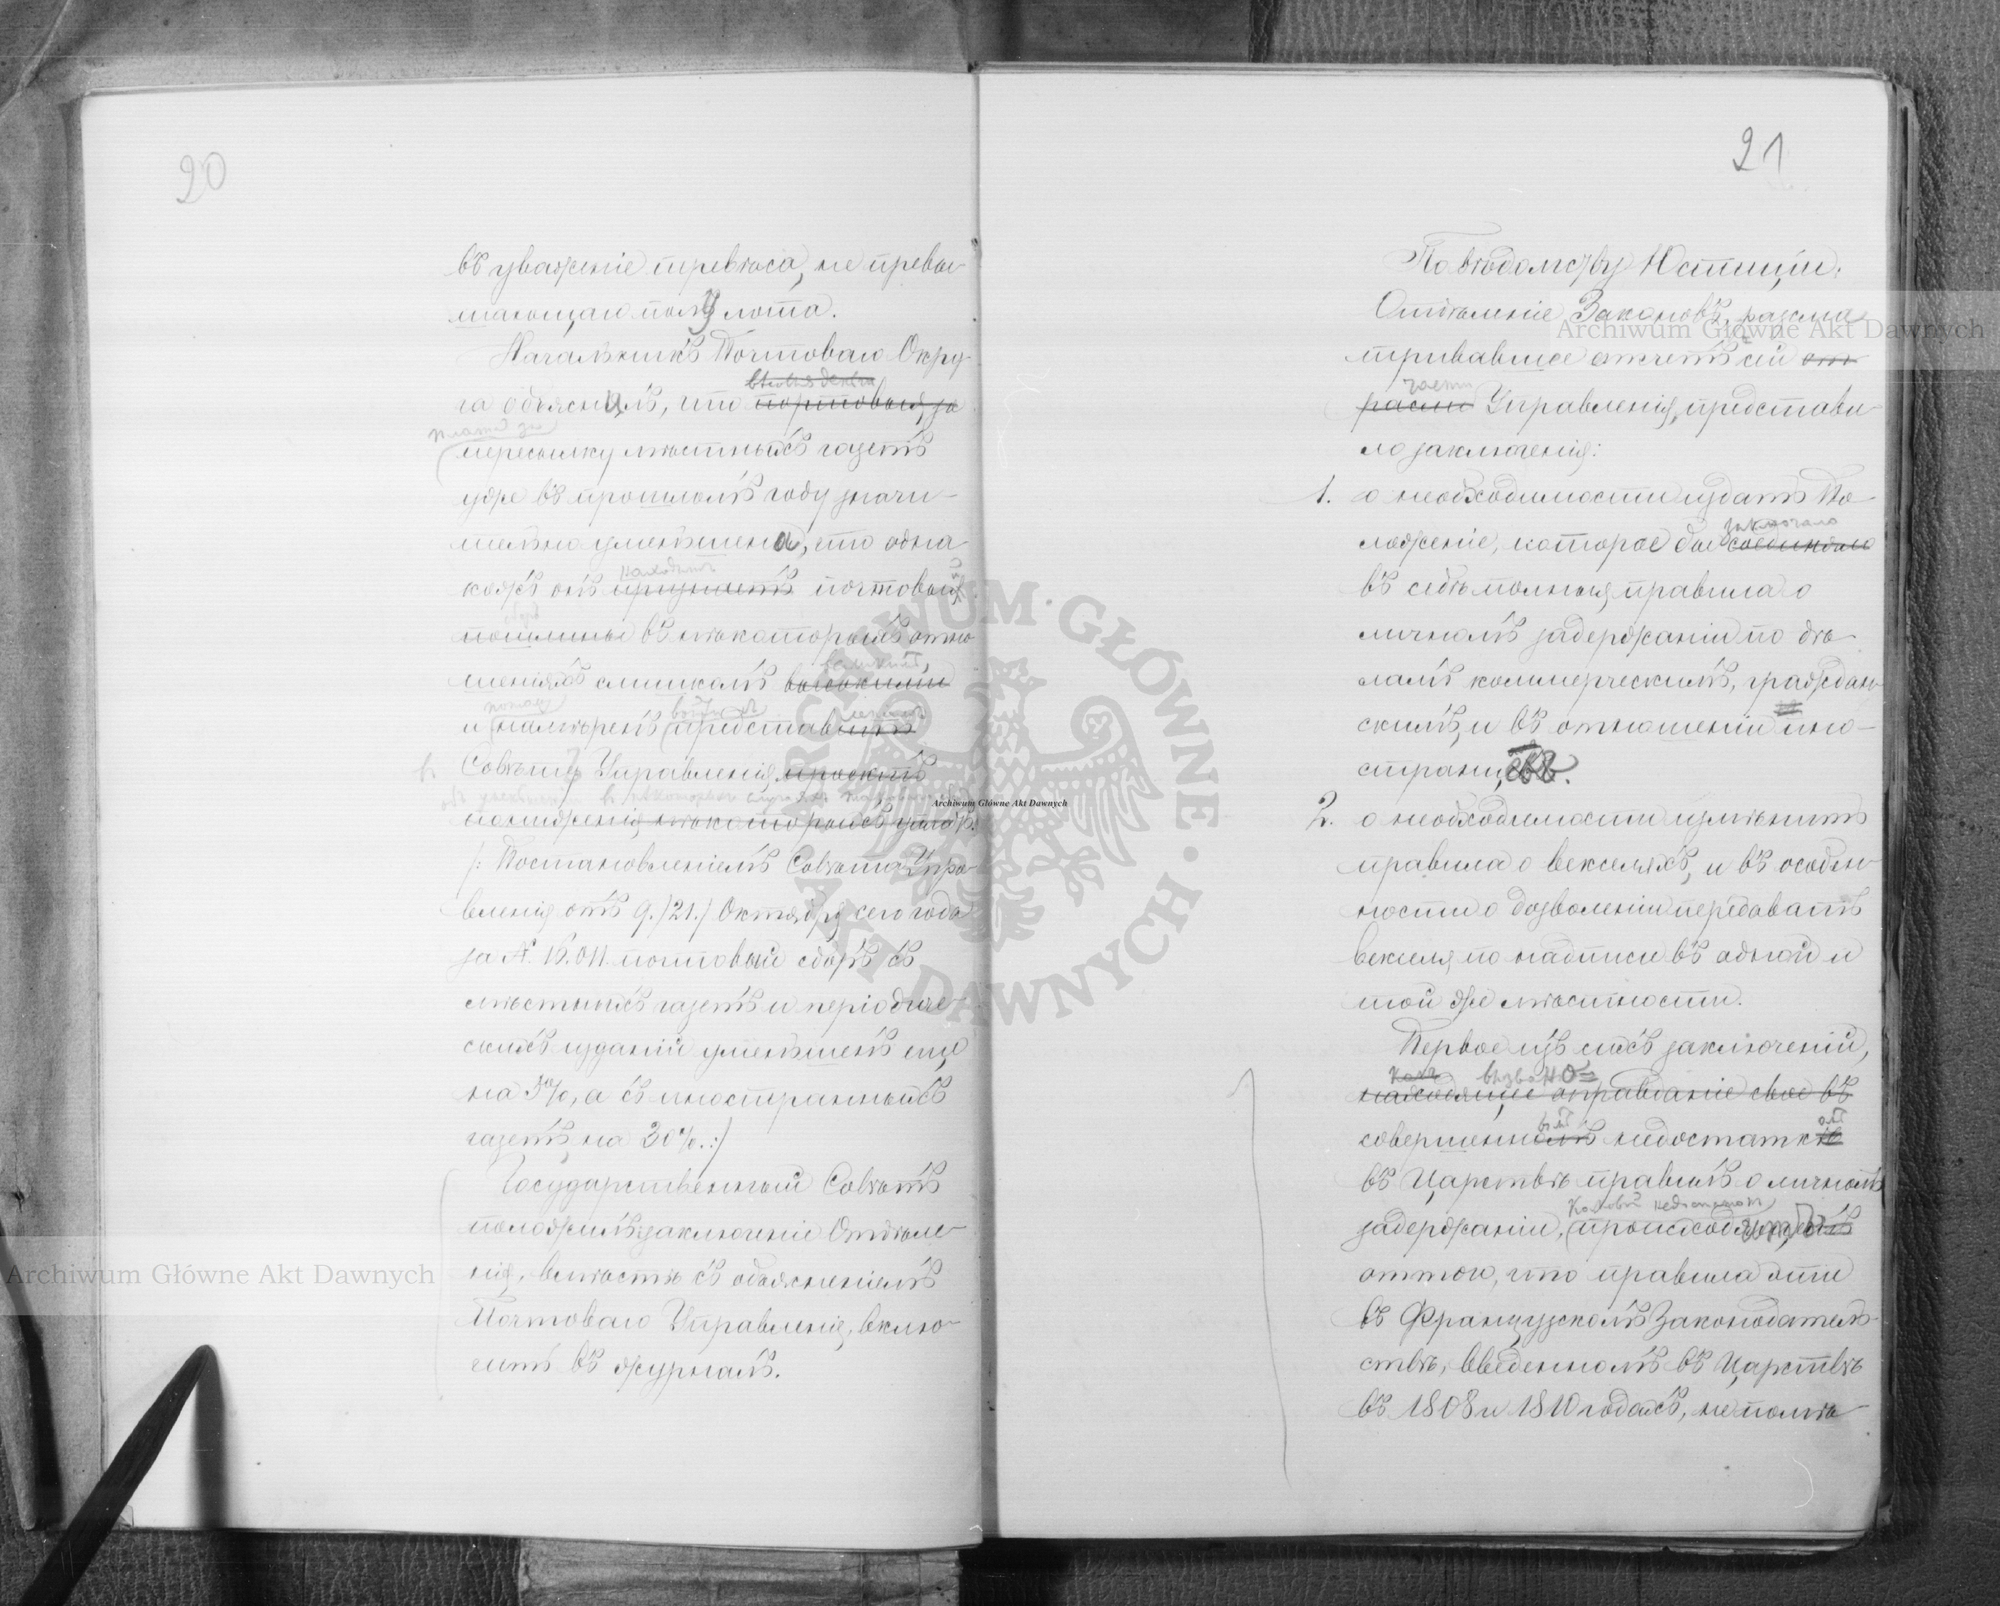 20
въ уваженіе перевѣса, не превы-
шающаго полулота.
Начальникъ Почтоваго Окру-
га объяснилъ, что портовыя за
плата за
пересылку мѣстныхъ газетъ
уже въ прошломъ году значи-
тельно уменьшена, что одна
находитъ
кожъ онъ признаетъ почтовыя
пошлины въ нѣкоторыхъ отно
шеніяхъ слишкомъ высокими
потому
и намѣренъ представить
Совѣту Управленія проектъ
пониженія нѣкоторыхъ
/: Постановленіемъ Совѣта Упра-
вленія отъ 9./21./ Октября сего года
за N. 16.011. почтовый сборъ съ
мѣстныхъ газетъ и періодиче-
скихъ изданій уменьшенъ еще
на 5%, а съ иностранныхъ
газетъ на 30%. :/
Государственный Совѣтъ
положилъ: заключеніе Отдѣле-
нія, вмѣстѣ съ объясненіемъ
Почтоваго Управленія, вклю-
чить въ журналъ.
21
По вѣдомству Юстиціи.
Отдѣленіе Законовъ, разсма
тривавшее отчетъ сей от
части
расли Управленія, представи
ло заключенія:
1. о необходимости издать По-
заключало
ложеніе, которое бы соединяло
въ себѣ полныя правила о
личномъ задержаніи по дѣ-
ламъ коммерческимъ, граждан
скимъ, и въ отношеніи ино-
странцевъ.
2. о необходимости измѣнить
правила о векселяхъ, и въ особен
ности о дозволеніи передавать
векселя по надписи въ одной и
той же мѣстности.
Первое изъ сихъ заключеній,
вызвано
находящее оправданіе свое въ
совершенномъ недостаткѣ
въ Царствѣ правилъ о личномъ
каковой недостатокъ
задержаніи, происходящемъ
оттого, что правила эти
въ Французскомъ Законодатель
ствѣ, введенномъ въ Царствѣ
въ 1808 и 1810 годахъ, не помѣ-
Archiwum Główne Akt Dawnych
Archiwum Główne Akt Dawnych
Archiwum Główne Akt Dawnych
ARCHIWUM · GŁÓWNE · AKT DAWNYCH ·